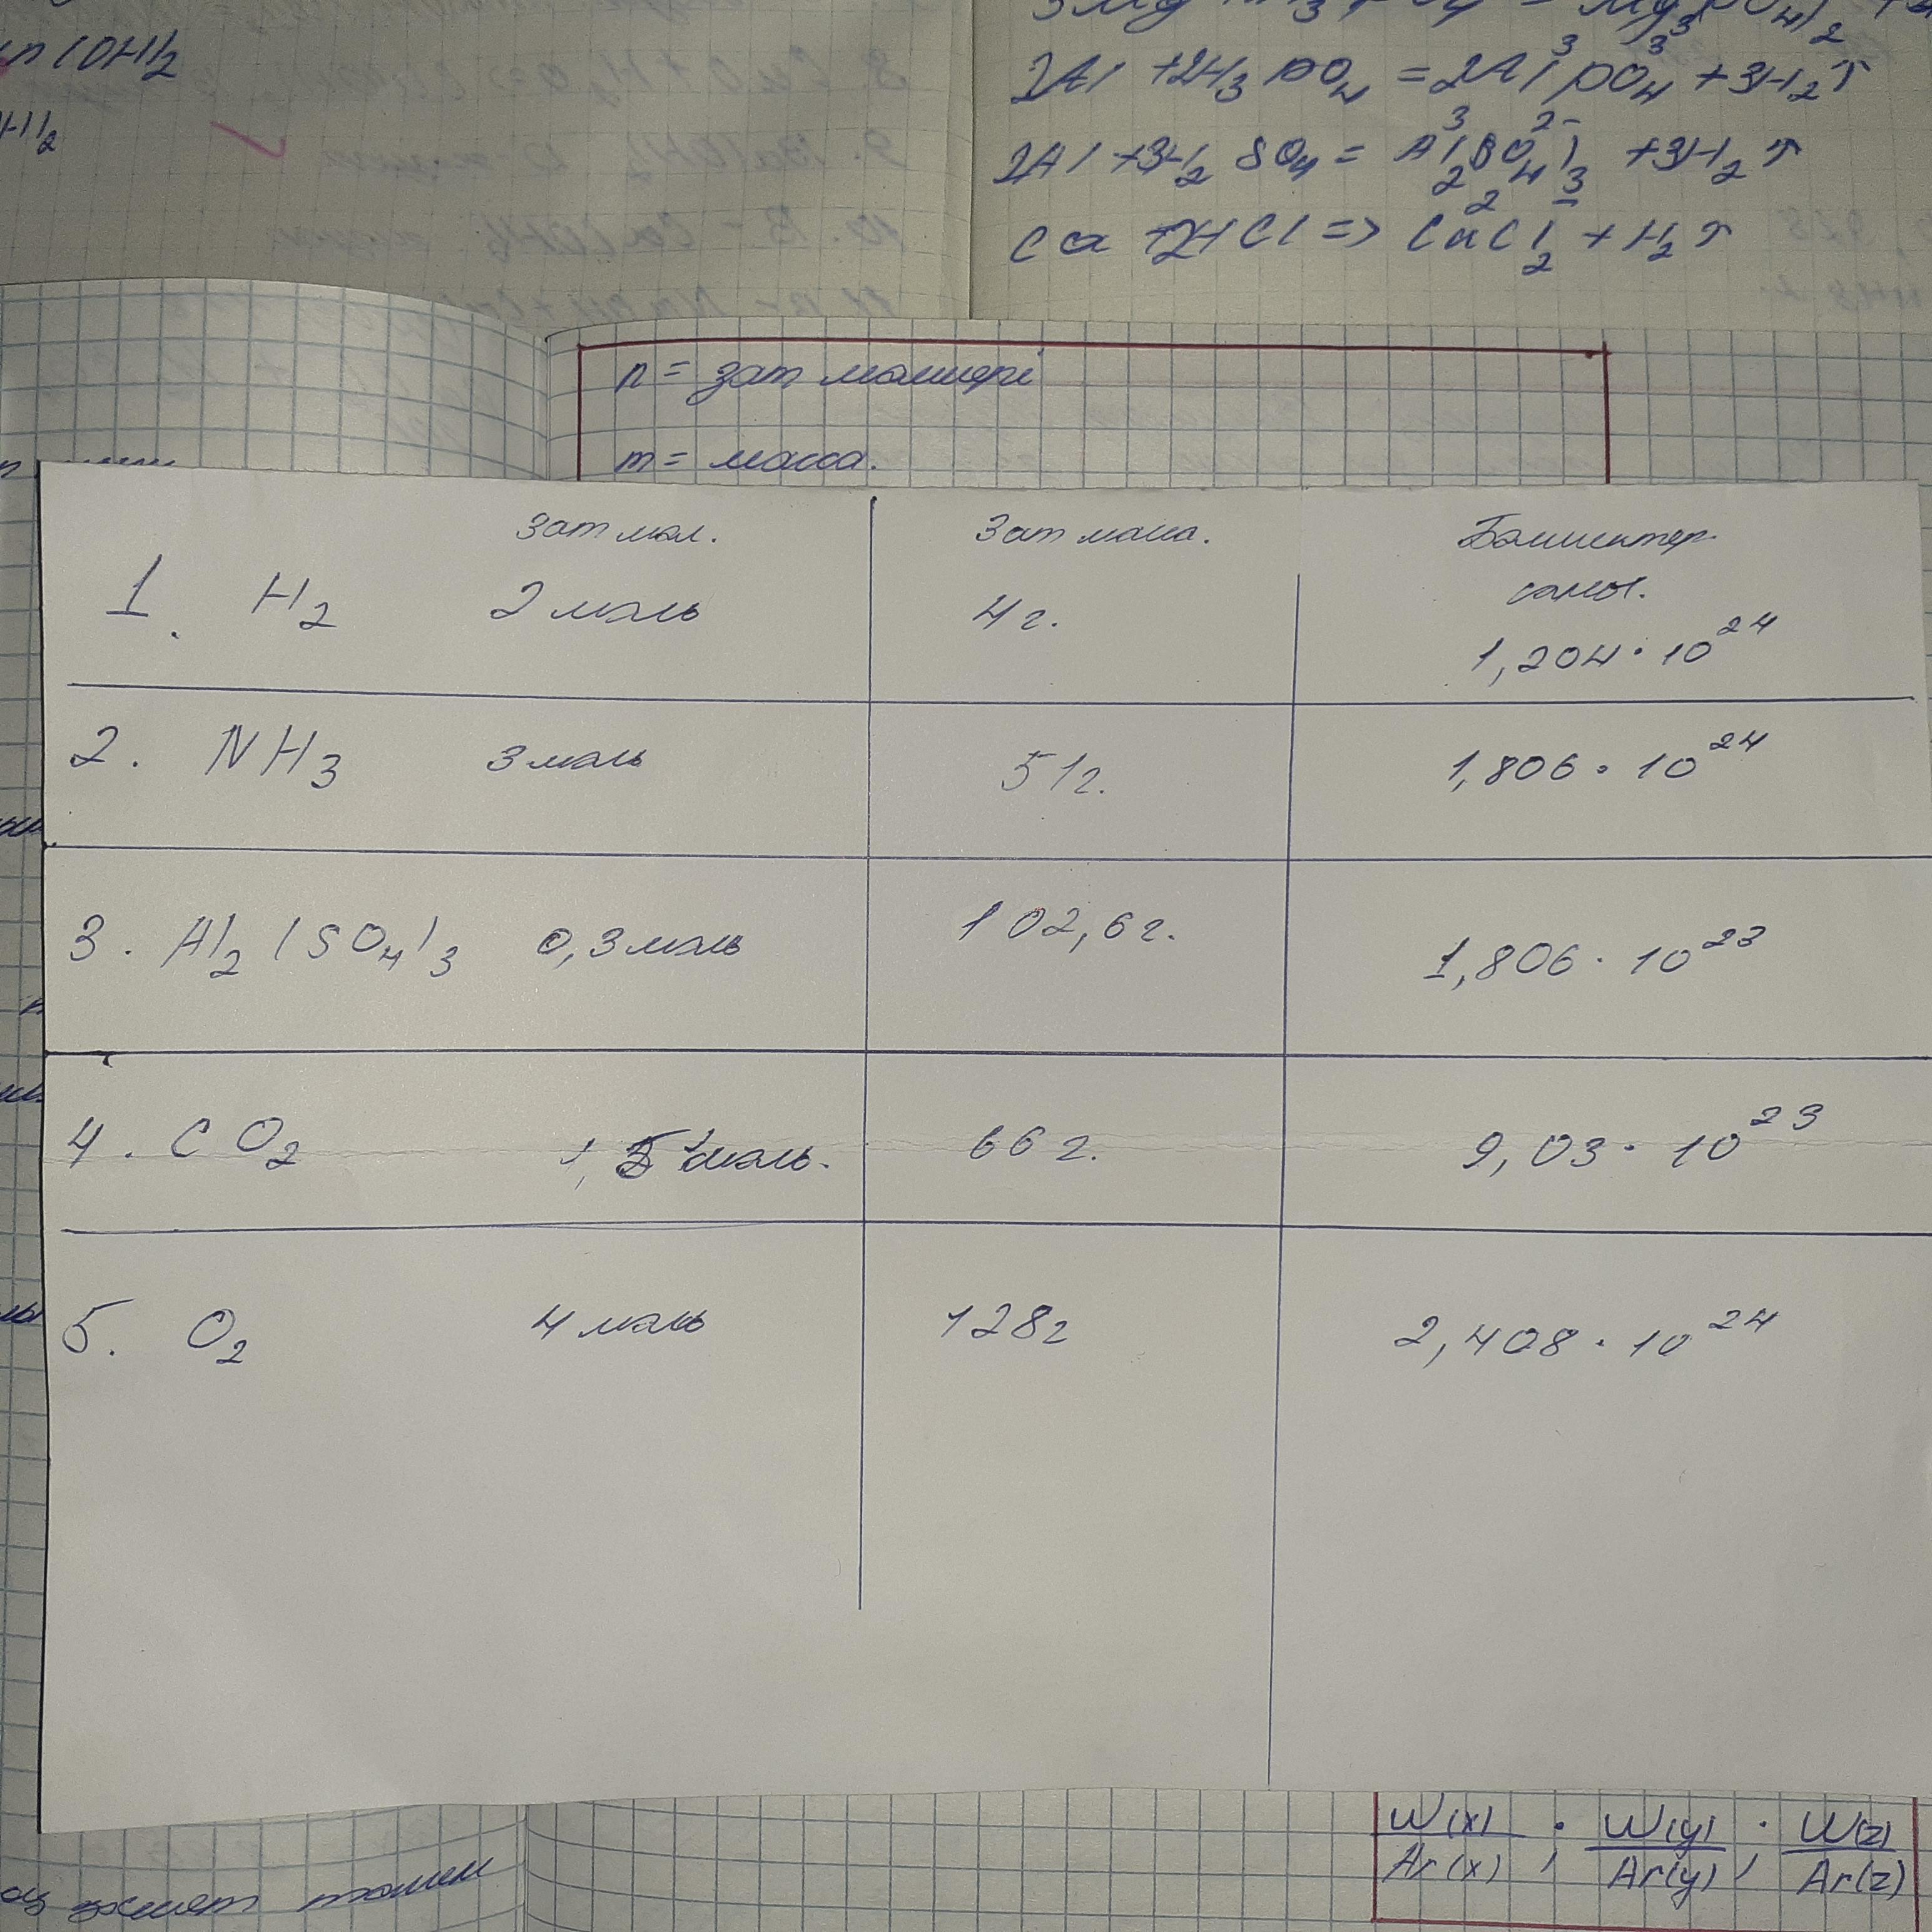 n(OH)2
H)2
2Al + 2H3PO4 = 2Al³PO4³ + 3H2↑
2Al + 3H2SO4 = Al³2(SO4²⁻)3 + 3H2↑
Ca + 2HCl => CaCl2 + H2↑
n = зат мөлшері
m = масса.
Зат мөл. Зат масса. Бөлшектер
саны.
1. H2 2 моль 4 г. 1,204 · 10²⁴
2. NH3 3 моль 51 г. 1,806 · 10²⁴
3. Al2(SO4)3 0,3 моль 102,6 г. 1,806 · 10²³
4. CO2 1,5 моль. 66 г. 9,03 · 10²³
5. O2 4 моль 128 г 2,408 · 10²⁴
W(x)/Ar(x) ; W(y)/Ar(y) ; W(z)/Ar(z)
төмен